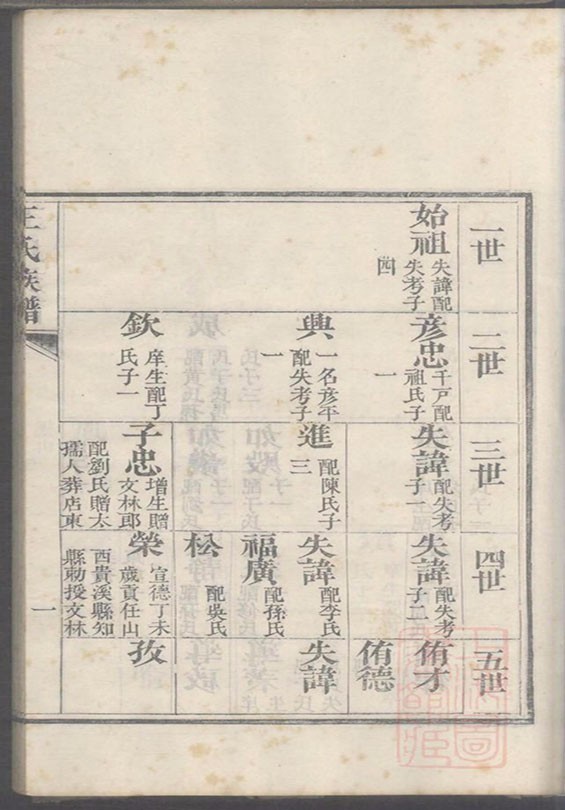 一世
始祖
失諱配
失考子
四
二世
彥忠
千戸配
祖氏子
一
興
一名彥平
配失考子
一
欽
庠生配丁
氏子一
三世
失諱
配失考
子一
進
配陳氏子
三
子忠
增生贈
文林郎
配劉氏贈太
孺人葬店東
四世
失諱
配失考
子二
失諱
配李氏
福廣
配孫氏
松
配吳氏
榮
宣德丁未
歲貢任山
西貴溪縣知
縣勅授文林
五世
侑才
侑德
失諱
孜
王氏族譜
一